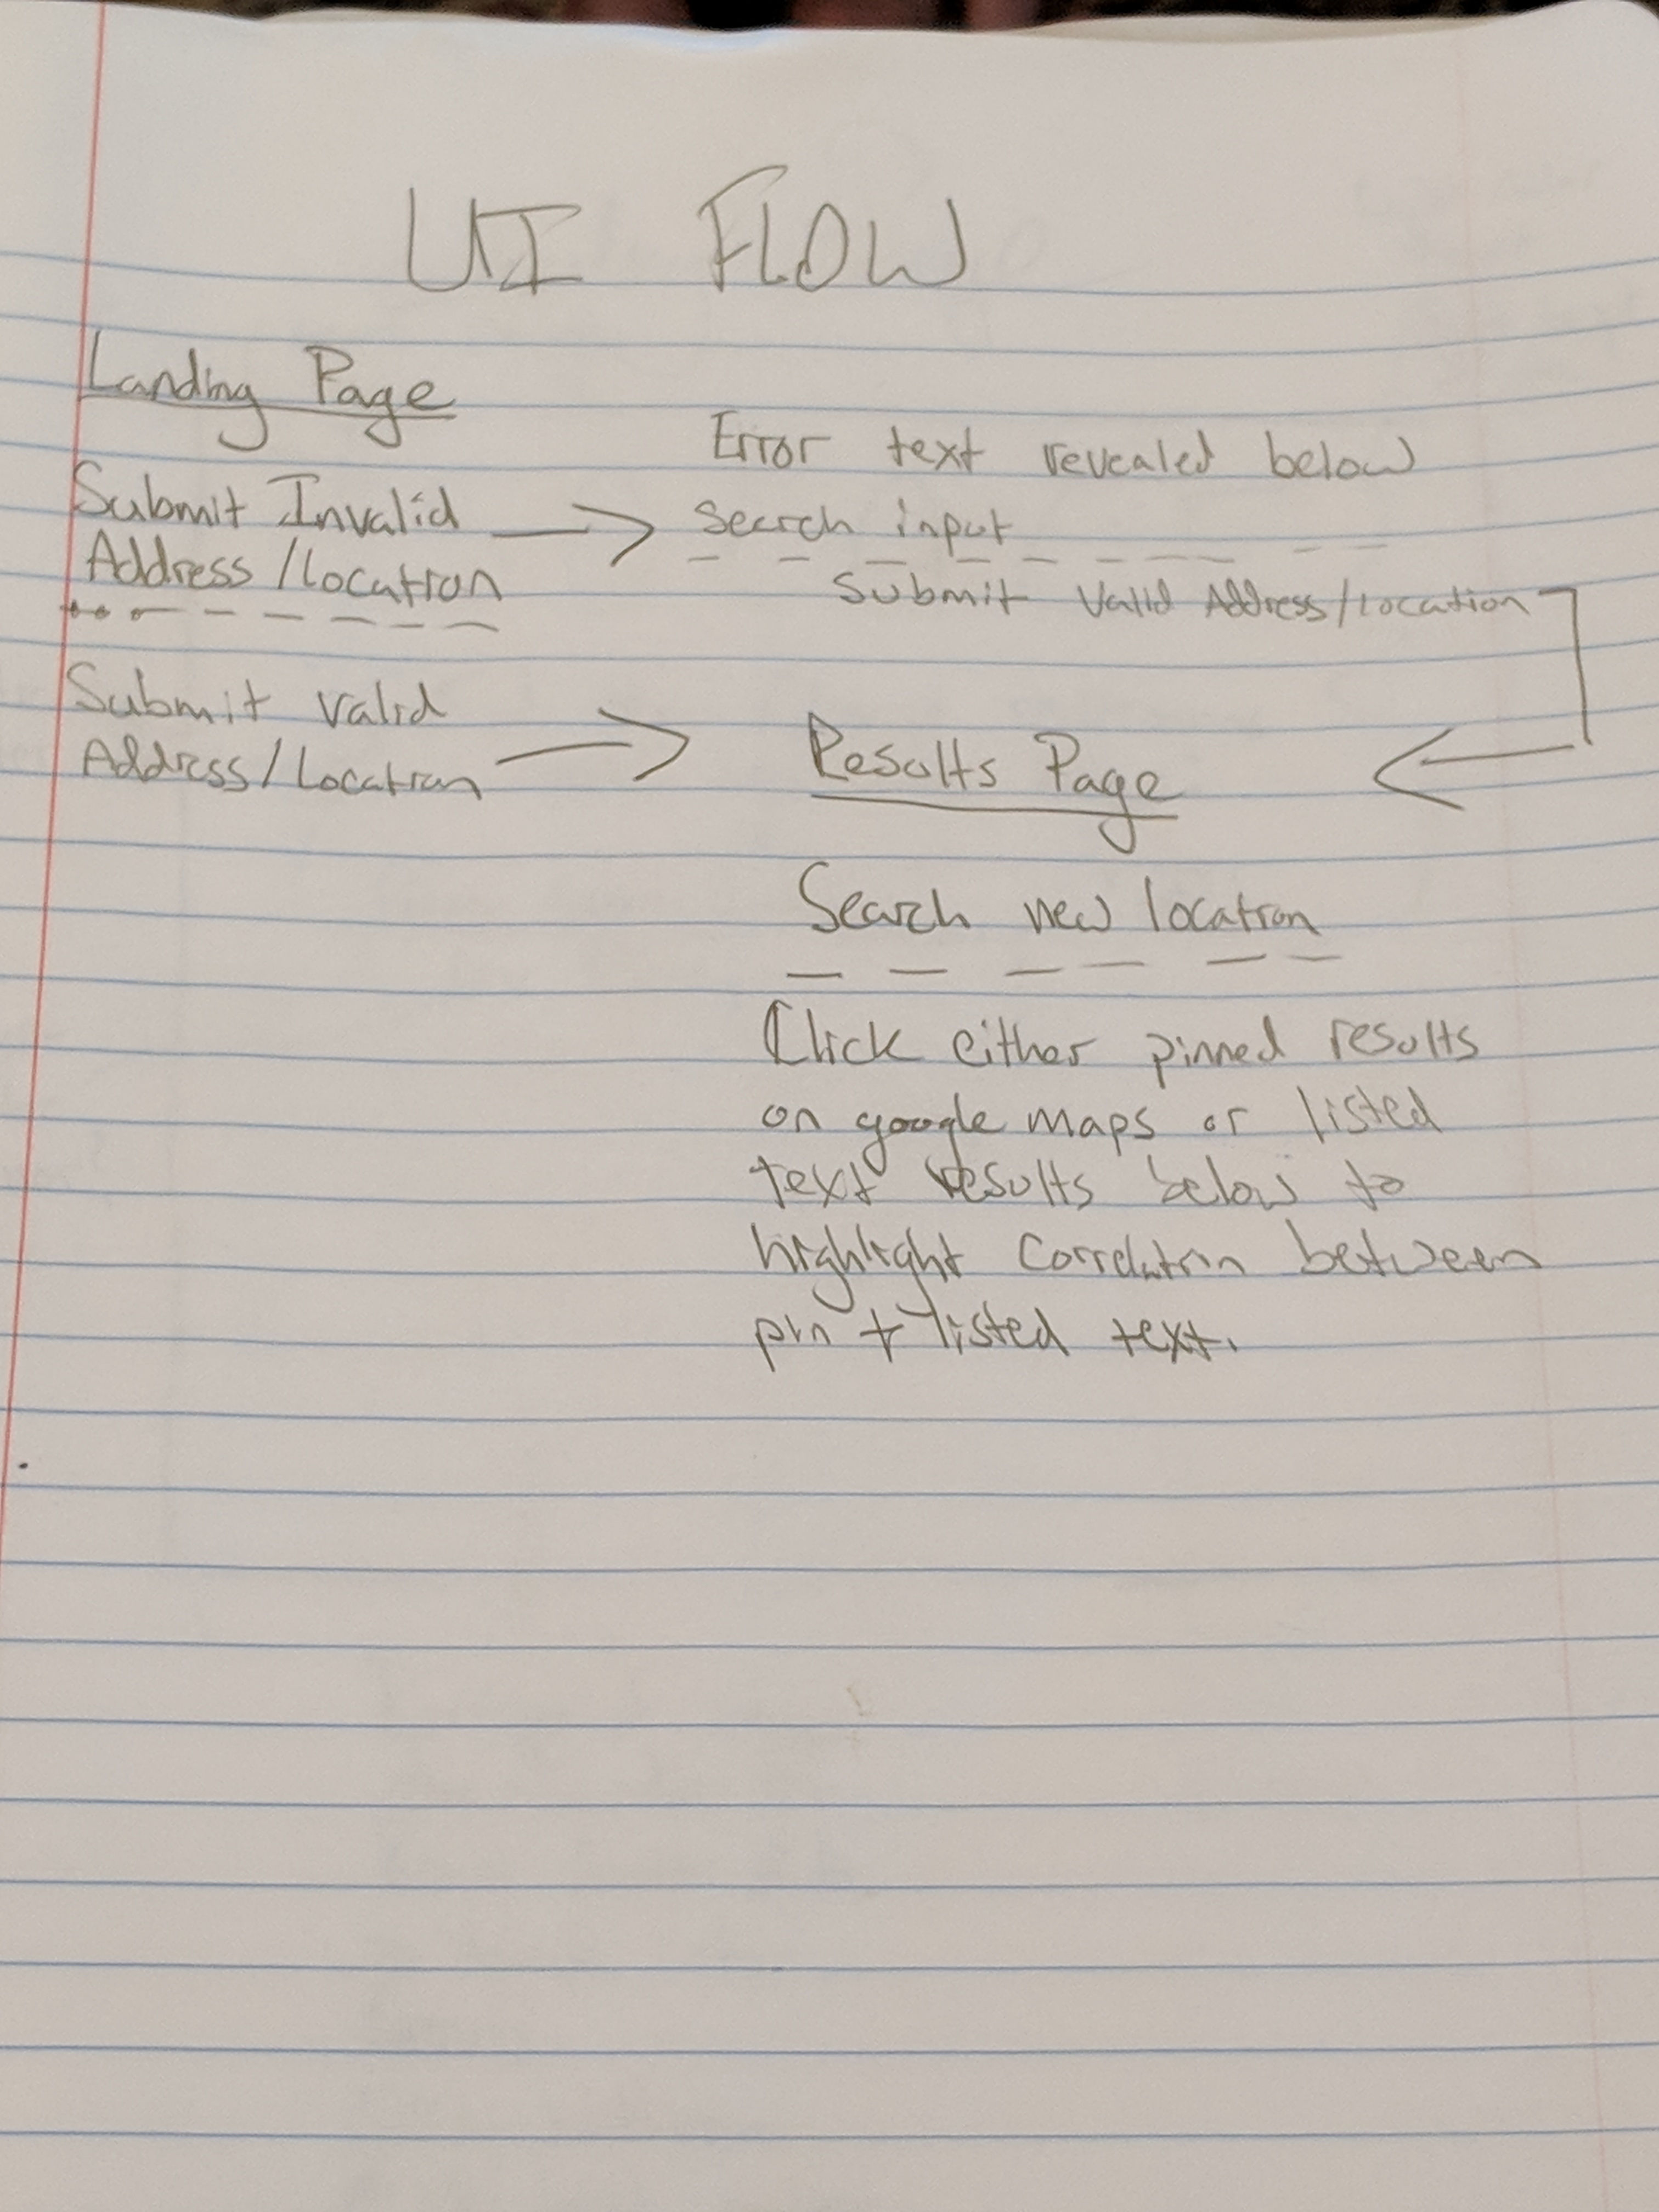 UI FLOW
Landing Page
Submit Invalid
Address/Location
Error text revealed below
search input
Submit Valid Address/Location
Submit valid
Address/Location
Results Page
Search new location
Click either pinned results
on google maps or listed
text results below to
highlight correlation between
pin + listed text.